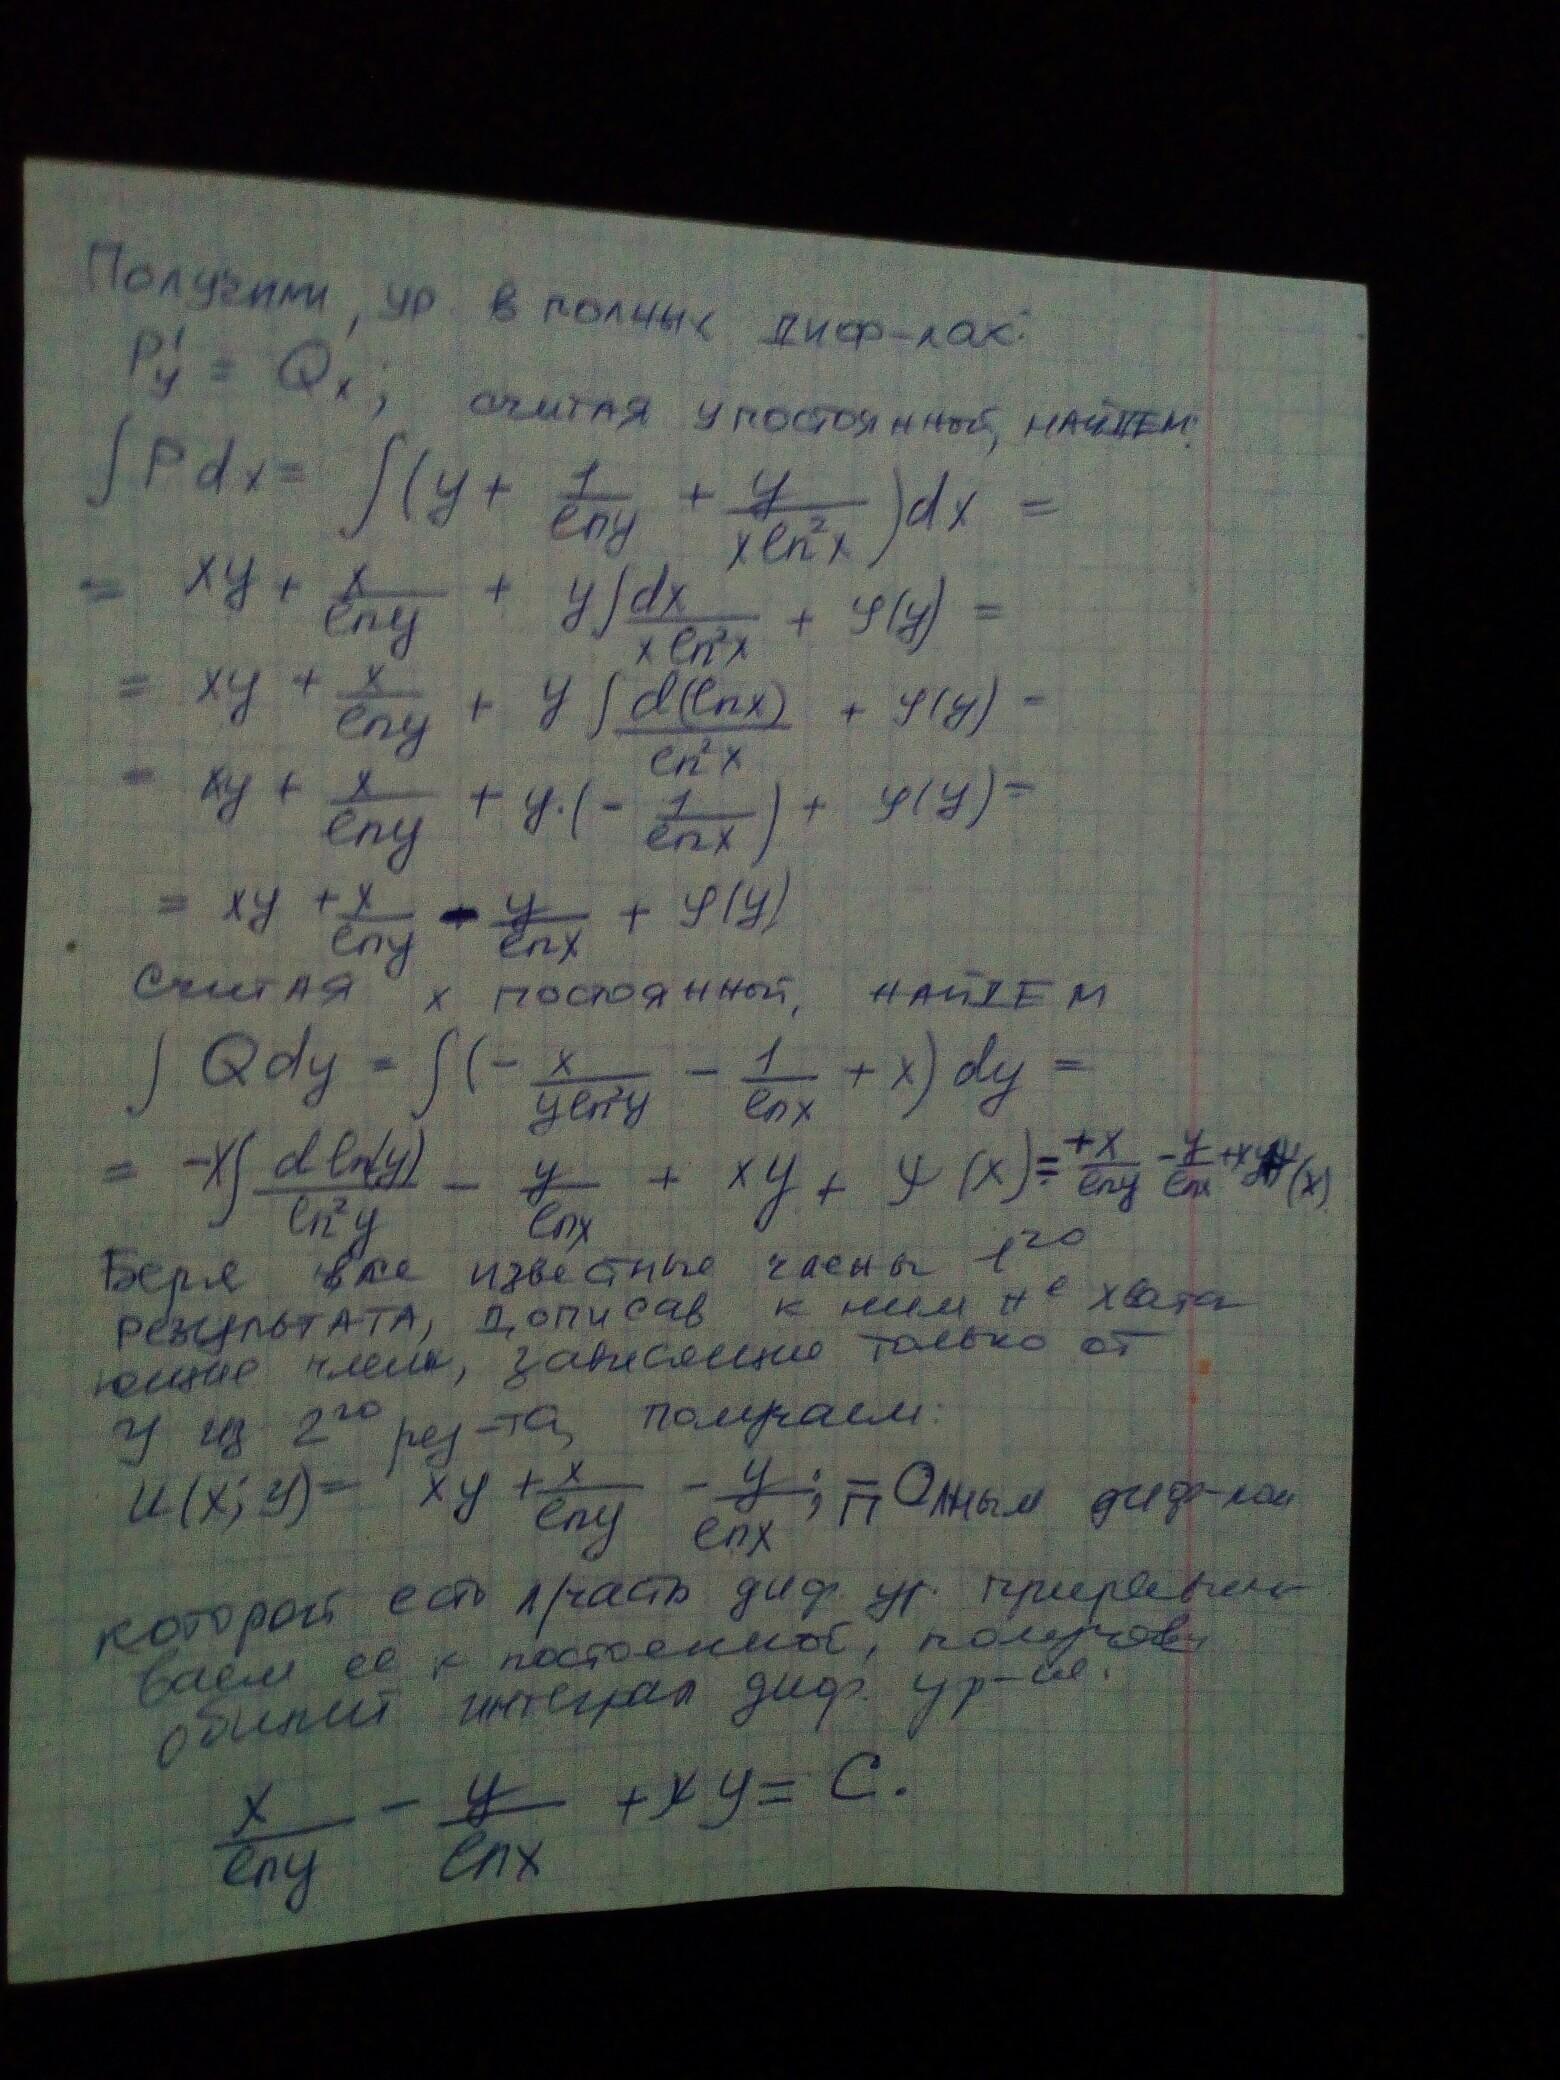 Получили, ур. в полных диф-лах:
P'y = Qx; считая y постоянной, найдем:
∫Pdx = ∫(y + 1/ln y + y/(x ln²x))dx =
= xy + x/ln y + y∫dx/(x ln²x) + φ(y) =
= xy + x/ln y + y∫d(ln x)/ln²x + φ(y) =
= xy + x/ln y + y·(-1/ln x) + φ(y) =
= xy + x/ln y - y/ln x + φ(y)
Считая x постоянной, найдем
∫Qdy = ∫(-x/(y ln²y) - 1/ln x + x)dy =
= -x∫d ln(y)/ln²y - y/ln x + xy + ψ(x) = +x/ln y - y/ln x + xy + ψ(x)
Беря все известные члены 1го
результата, дописав к ним не хвата
ющие члены, зависящие только от
y из 2го рез-та, получаем:
u(x; y) = xy + x/ln y - y/ln x; полным диф-лом
которой есть л/часть диф. ур. приравни
ваем ее к постоянной, получаем
общий интеграл диф. ур-ия.
x/ln y - y/ln x + xy = C.